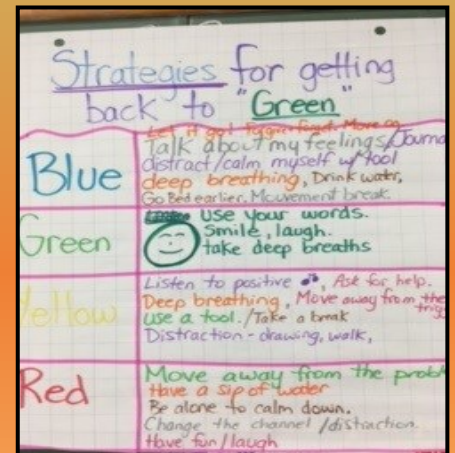 Strategies for getting
back to "Green"
Blue
Let it go! Forget Move on
Talk about my feelings/Journa
distract/calm myself w/ tool
deep breathing, Drink water,
Go Bed earlier, Mouvement break.
Green
Use your words.
Smile, laugh.
take deep breaths
Yellow
Listen to positive, Ask for help.
Deep breathing, Move away from the
trigg
use a tool./Take a break
Distraction - drawing, walk,
Red
Move away from the probl
Have a sip of water
Be alone to calm down.
Change the channel /distraction.
Have fun/laugh